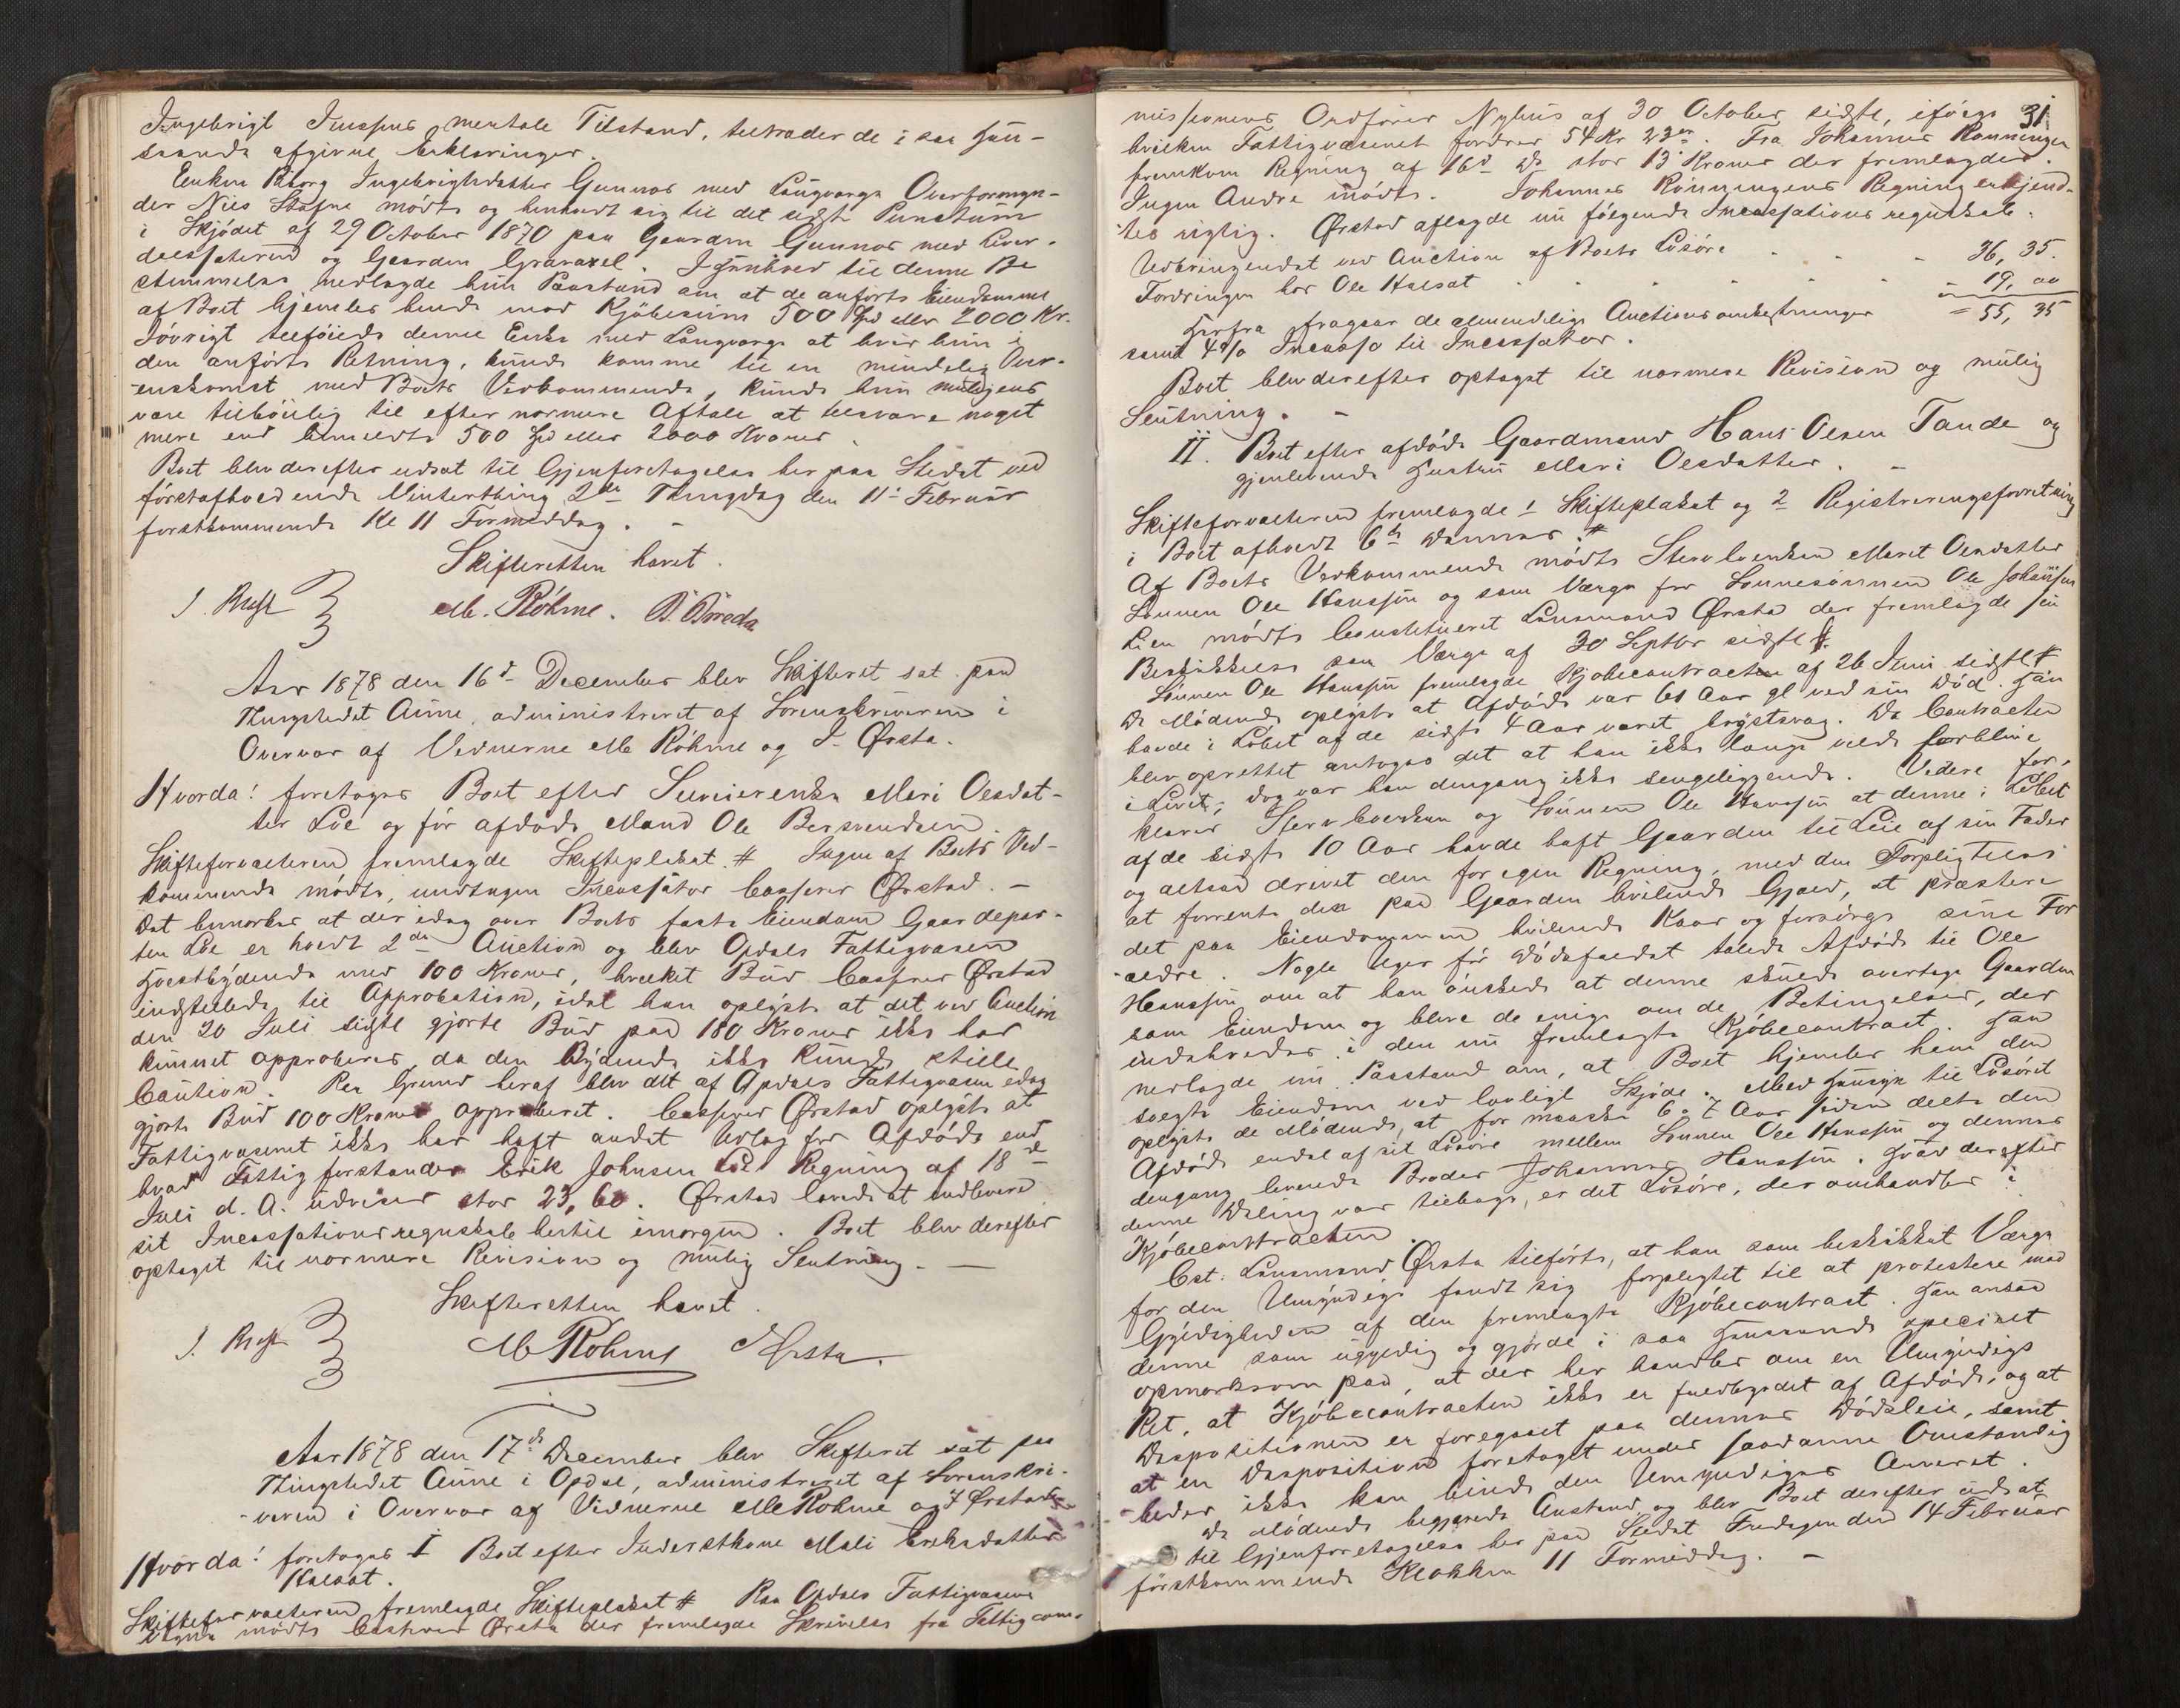 Ingebrigt Jnssens mentale Tilstand, tiltræder de i saa Hen-
seende afgivne Erklæringer.
Enken Ingebrigtsdatter Gunnes med Laugværge Overformyn-
der Nils Stafne mødte og henholdt sig til det sidste Punctum
i Skjødet af 29 October 1870 paa Gaarden Gunnes med Lever-
dalssæteren og Gaarden Gravaxel. I Henhold til denne Be
stemmelse nedlagde hun Paastand om at de anførte Eiendomme
af Boet hjemles hende mod Kjøbesum 500 Spd eller 2000 Kr.
Iøvrigt tilføiede denne Enke med Laugværge at hvis hun i
den anførte Retning, kunde komme til en mindelig Over-
enskomst med Boets Vedkommende, kunde hun muligens
være tilbøielig til efter nærmere Aftale at tilsvare noget
mere end bemeldte 500 Spd eller 2000 Kroner.
Boet blev derefter udsat til Gjenforetagelse her paa Stedet ved
førstafholdende Vinterthing 2den Thingdag den 11te Februar
førstkommende Kl 11 Formiddag. -
Skifteretten hævet.
M. Röhme. B. Breda
Aar 1878 den 16de December blev Skifteret sat paa
Thingstedet Aune, administreret af Sorenskriveren i
Overvær af Vidnerne M Röhme og J. Ørsta.
Hvorda: foretoges Boet efter Inderstenke Mari Olsdat-
ter Loe og før afdøde Mand Ole Bersvendsen.
Skifteforvalteren fremlagde Skifteplakat # Ingen af Boets Ved-
kommende mødte, undtagen Incassator Casserer Ørstad. -
Det bemærkes at der idag over Boets faste Eiendom Gaardepar-
ten Loe er holdt 2den Auction og blev Opdals Fattigvæsen
Høistbydende med 100 Kroner, hvilket Bud Casserer Ørstad
indstillede til Approbation, idet han oplyste at det ved Auction
den 20 Juli sidste gjorte Bud paa 180 Kroner ikke har
kunnet approberes, da den Bydende ikke kunde stille
Caution. Paa Grund heraf blev det af Opdals Fattigvæsen idag
gjorte Bud 100 Kroner approberet. Casserer Ørstad oplyste at
Fattigvæsenet ikke har havt andet Udlæg for Afdøde end
hvad Fattigforstander Erik Johnsen Loe Regning af 18de
Juli d. A. udviser stor 23,60. Ørstad lovede at indlevere
sit Incassationsregnskab hertil imorgen. Boet blev derefter
optaget til nærmere Revision og mulig Slutning. -
Skifteretten hævet.
M Röhme J Ørsta.
Aar 1878 den 17de December blev Skifteret sat paa
Thingstedet Aune i Opdal, administreret af Sorenskri-
veren i Overvær af Vidnerne M Röhme og J Ørstad
Hvorda: foretoges I Boet efter Inderstkone Mali Eriksdatter
Halsæt.
Skifteforvalteren fremlagde Skifteplakat # Paa Opdals Fattigvæsens
Vegne mødte Casserer Ørsta der fremlagde Skrivelse fra Fattigcom-
31
missionens Ordfører Nyhus af 30 October sidste, ifølge
hvilken Fattigvæsenet fordrer 54 Kr 23 ør. Fra Johannes Rønningen
fremkom Regning af 16de ds stor 13 Kroner der fremlagdes.
Ingen Andre mødte. Johannes Rønningens Regning erkjend-
tes rigtig. Ørstad aflagde nu følgende Incassations regnskab:
Udbringendet ved Auction af Boets Løsøre - - - 36, 35.
Fordringen hos Ole Halsæt - - - - - 19, 00
= 55, 35
Herfra fragaar de almindelige Auctionsomkostninger
samt 4% Incasso til Incassator.
Boet blev derefter optaget til nærmere Revision og mulig
Slutning. -
II. Boet efter afdøde Gaardmand Hans Olsen Tande og
gjenlevende Hustru Mari Olsdatter. -
Skifteforvalteren fremlagde 1 Skifteplakat og 2 Registreringsforretning
i Boet afholdt 6te dennes. #
Af Boets Vedkommende mødte Stervboenken Marit Olsdatter
Sønnen Ole Hanssen og som Værge for Sønnesønnen Ole Johanssen
Lien mødte Constitueret Lensmand Ørsta der fremlagde sin
Beskikkelse som Værge af 30 Septbr sidste #.
Sønnen Ole Hanssen fremlagde Kjøbecontracten af 26 Juni sidste #
De Mødende oplyste at Afdøde var 61 Aar gl ved sin Død. Han
havde i Løbet af de sidste 4 Aar været brystsvag. Da Contracten
blev oprettet antoges det at han ikke længe vilde forblive
i Livet; dog var han dengang ikke sengeliggende. Videre for-
klarer Stervboenken og Sønnen Ole Hanssen at denne i Løbet
af de sidste 10 Aar havde havt Gaarden til Leie af sin Fader
og altsaa drevet den for egen Regning, med den Forpligtelse
at forrente den paa Gaarden hvilende Gjæld, at præstere
det paa Eiendommen hvilende Kaar og forsørge sine For
-ældre. Nogle Uger før Dødsfaldet talede Afdøde til Ole
Hanssen om at han ønskede at denne skulde overtage Gaarden
som Eiendom og bleve de enige om de Betingelser, der
indeholdes i den nu fremlagte Kjøbecontract. Han
nedlagde nu Paastand om, at Boet hjemler ham den
solgte Eiendom ved lovligt Skjøde. Med Hensyn til Løsøret
oplyste de Mødende, at for maaske 6 a 7 Aar siden delte den
Afdøde endel af sit Løsøre mellem Sønnen Ole Hanssen og dennes
dengang levende Broder Johannes Hanssen. Hvad der efter
denne Deling var tilbage, er det Løsøre, der omhandles i
Kjøbecontracten.
Cst. Lensmand Ørsta tilførte, at han som beskikket Værge
for den Umyndige fandt sig forpligtet til at protestere mod
Gyldigheden af den fremlagte Kjøbecontract. Han ansaa
denne som ugyldig og gjorde i saa Henseende specielt
opmærksom paa, at der her handles om en Umyndigs
Ret, at Kjøbecontracten ikke er fuldbyrdet af Afdøde, og at
Dispositionen er foregaaet paa dennes Dødsleie, samt
at en Disposition foretaget under saadanne Omstændig
-heder ikke kan binde den Umyndiges Arveret.
De Mødende begjærede Anstand og blev Boet derefter udsat
til Gjenforetagelse her paa Stedet Fredagen den 14 Februar
førstkommende Klokken 11 Formiddag. -